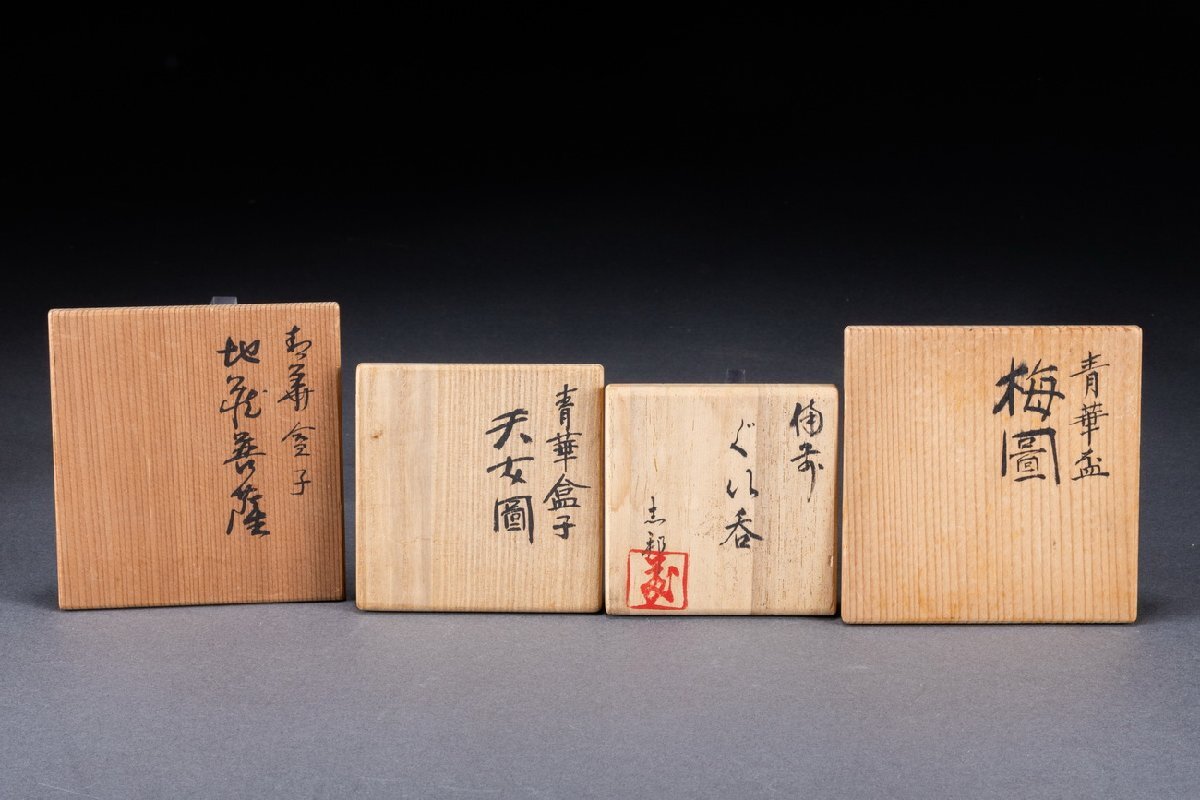 青華盒子
地蔵菩薩
青華盒子
天女圖
備前
ぐい呑
青華盃
梅圖